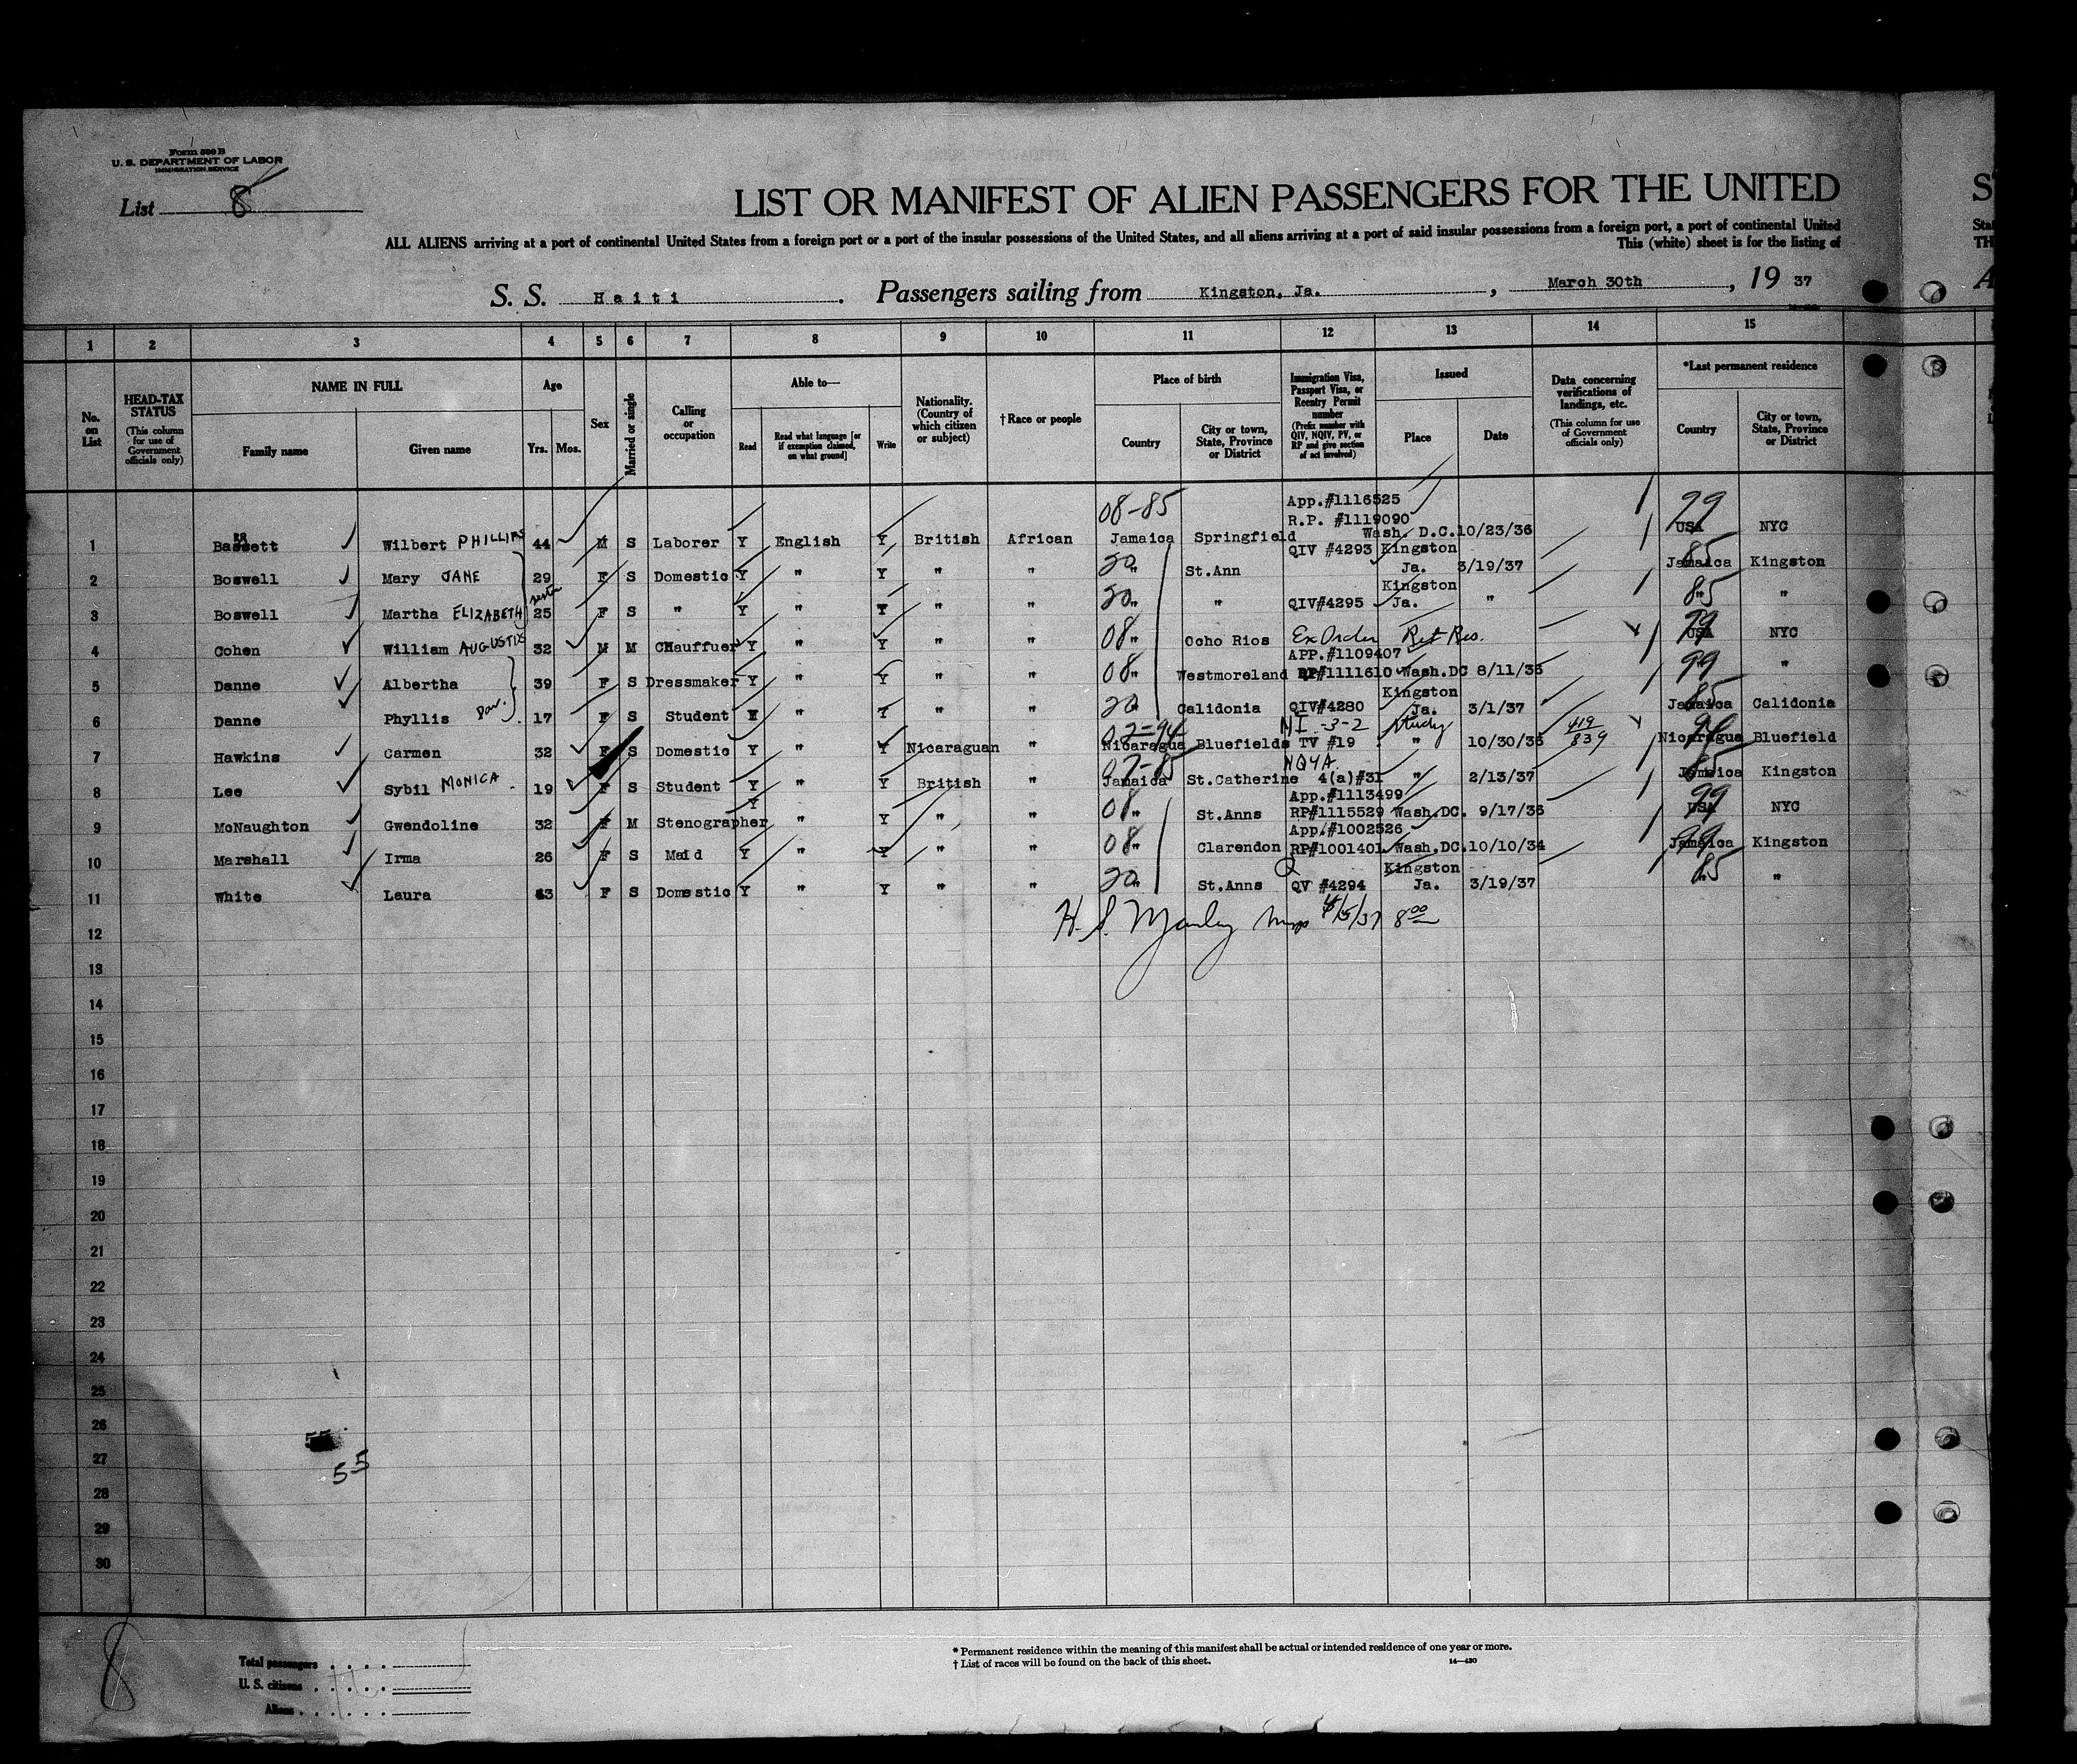 Form 500 B
U. S. DEPARTMENT OF LABOR
IMMIGRATION SERVICE
List 8
LIST OR MANIFEST OF ALIEN PASSENGERS FOR THE UNITED
ALL ALIENS arriving at a port of continental United States from a foreign port or a port of the insular possessions of the United States, and all aliens arriving at a port of said insular possessions from a foreign port, a port of continental United
This (white) sheet is for the listing of
S. S. Haiti. Passengers sailing from Kingston, Ja., March 30th, 19 37
1 2 3 4 5 6 7 8 9 10 11 12 13 14 15
No. on List
HEAD-TAX STATUS (This column for use of Government officials only)
NAME IN FULL
Family name Given name
Age
Yrs. Mos.
Sex
Married or single
Calling or occupation
Able to—
Read Read what language [or if exemption claimed, on what ground] Write
Nationality. (Country of which citizen or subject)
†Race or people
Place of birth
Country City or town, State, Province or District
Immigration Visa, Passport Visa, or Reentry Permit number (Prefix number with QIV, NQIV, PV, or RP and give section of act involved)
Issued
Place Date
Data concerning verifications of landings, etc. (This column for use of Government officials only)
*Last permanent residence
Country City or town, State, Province or District
08-85 App.#1116525 99
RR R.P. #1119090
1 Bassett Wilbert PHILLIPS 44 M S Laborer Y English Y British African Jamaica Springfield Wash. D.C. 10/23/36 USA NYC
2 Boswell Mary JANE 29 F S Domestic Y " Y " " 20 " St.Ann QIV #4293 Kingston Ja. 3/19/37 85 Jamaica Kingston
sister
3 Boswell Martha ELIZABETH 25 F S " Y " Y " " 20 " " QIV#4295 Kingston Ja. " 85 " "
4 Cohen William AUGUSTIS 32 M M CHauffuer Y " Y " " 08 " Ocho Rios Ex Order Ret Res. 99 USA NYC
APP.#1109407
5 Danne Albertha 39 F S Dressmaker Y " Y " " 08 " Westmoreland RP#1111610 Wash.DC 8/11/36 99 "
6 Danne Phyllis Dau. 17 F S Student Y " Y " " 20 " Calidonia QIV#4280 Kingston Ja. 3/1/37 85 Jamaica Calidonia
02-94 NI -3-2 Study 419/839
7 Hawkins Carmen 32 F S Domestic Y " Y Nicaraguan " Nicaragua Bluefields TV #19 " 10/30/36 94 Nicaragua Bluefield
07-85 NQ4A
8 Lee Sybil MONICA 19 F S Student Y " Y British " Jamaica St.Catherine 4(a)#31 " 2/13/37 85 Jamaica Kingston
App.#1113499
9 McNaughton Gwendoline 32 F M Stenographer Y " Y " " 08 " St.Anns RP#1115529 Wash.DC. 9/17/36 99 USA NYC
App.#1002526
10 Marshall Irma 26 F S Maid Y " Y " " 08 " Clarendon RP#1001401 Wash.DC. 10/10/34 99 Jamaica Kingston
11 White Laura 43 F S Domestic Y " Y " " 20 " St.Anns QV #4294 Kingston Ja. 3/19/37 85 " "
H. S. Manley 4/5/37 8 00
12
13
14
15
16
17
18
19
20
21
22
23
24
25
26
27
55
28
29
30
8
Total passengers
U. S. citizens
Aliens
* Permanent residence within the meaning of this manifest shall be actual or intended residence of one year or more.
† List of races will be found on the back of this sheet. 14—430